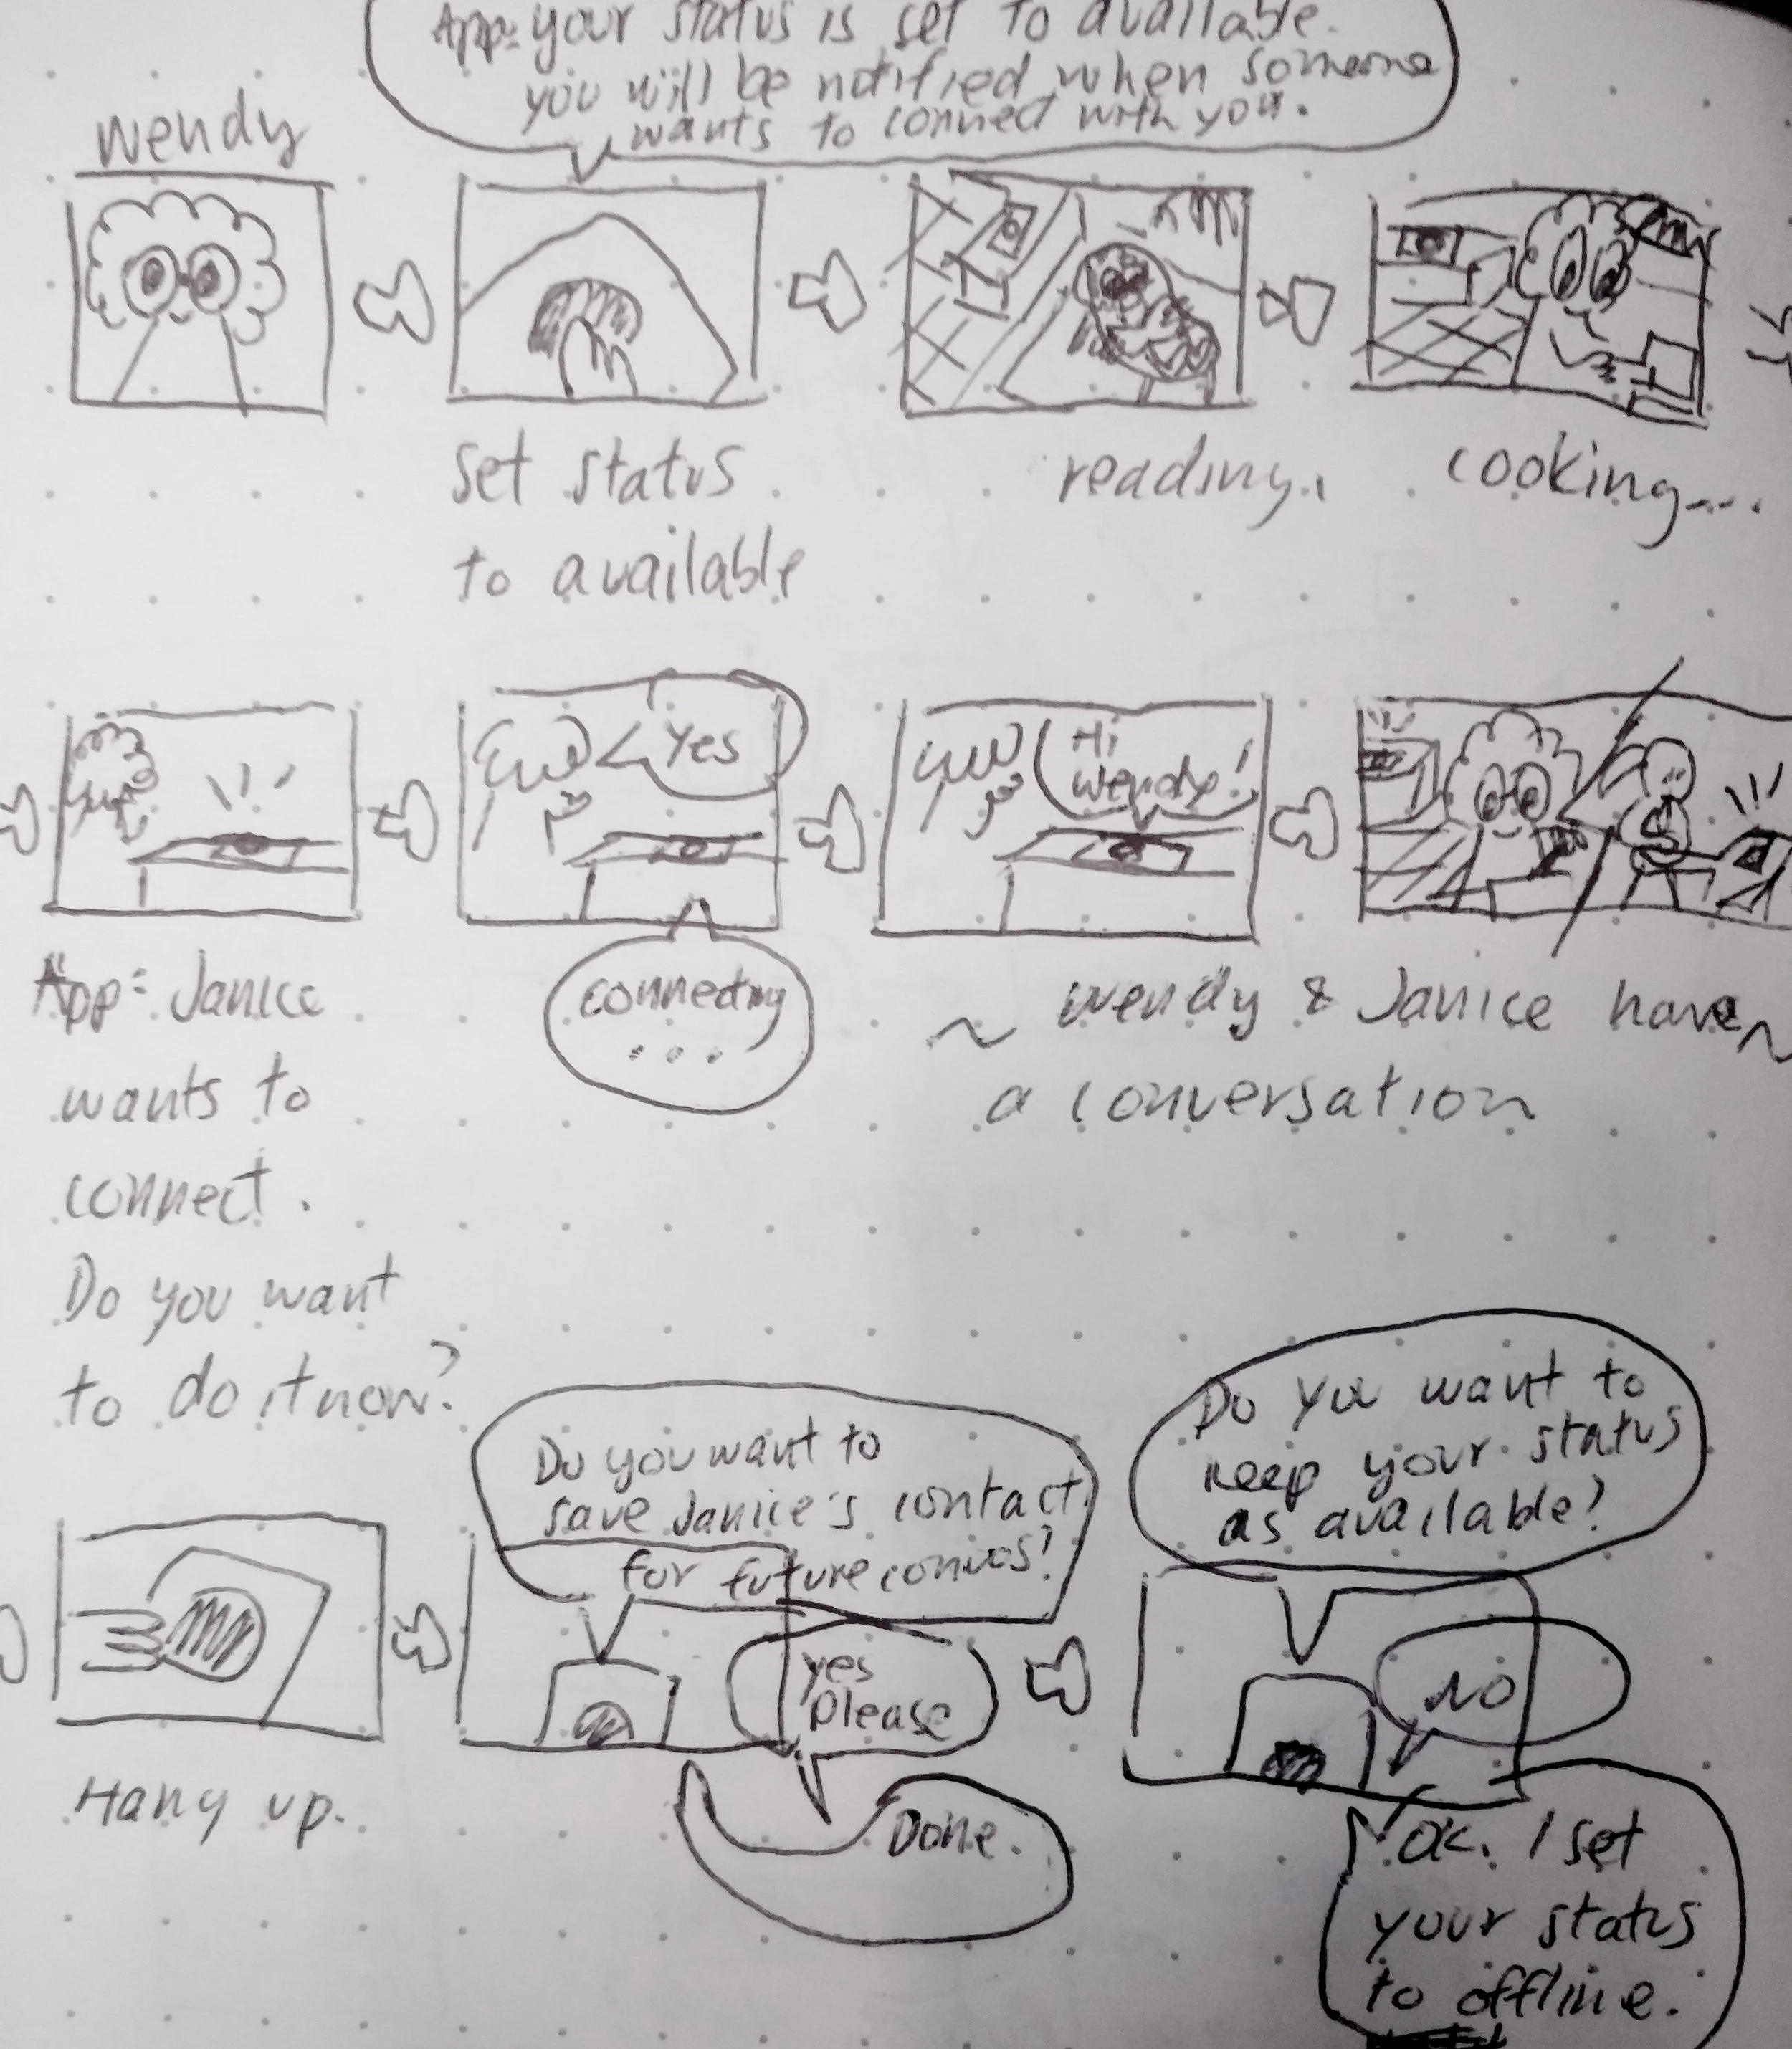 App: your status is set to available.
you will be notified when someone
wants to connect with you.
Wendy
set status
to available
reading..
cooking....
Yes
Hi
Wendy!
App: Janice
wants to
connect.
Do you want
to do it now?
connecting
...
~ Wendy & Janice have ~
a conversation
Do you want to
save Janice's contact
for future convos?
yes
please
Done.
Hang up.
Do you want to
keep your status
as available?
NO
OK. I set
your status
to offline.